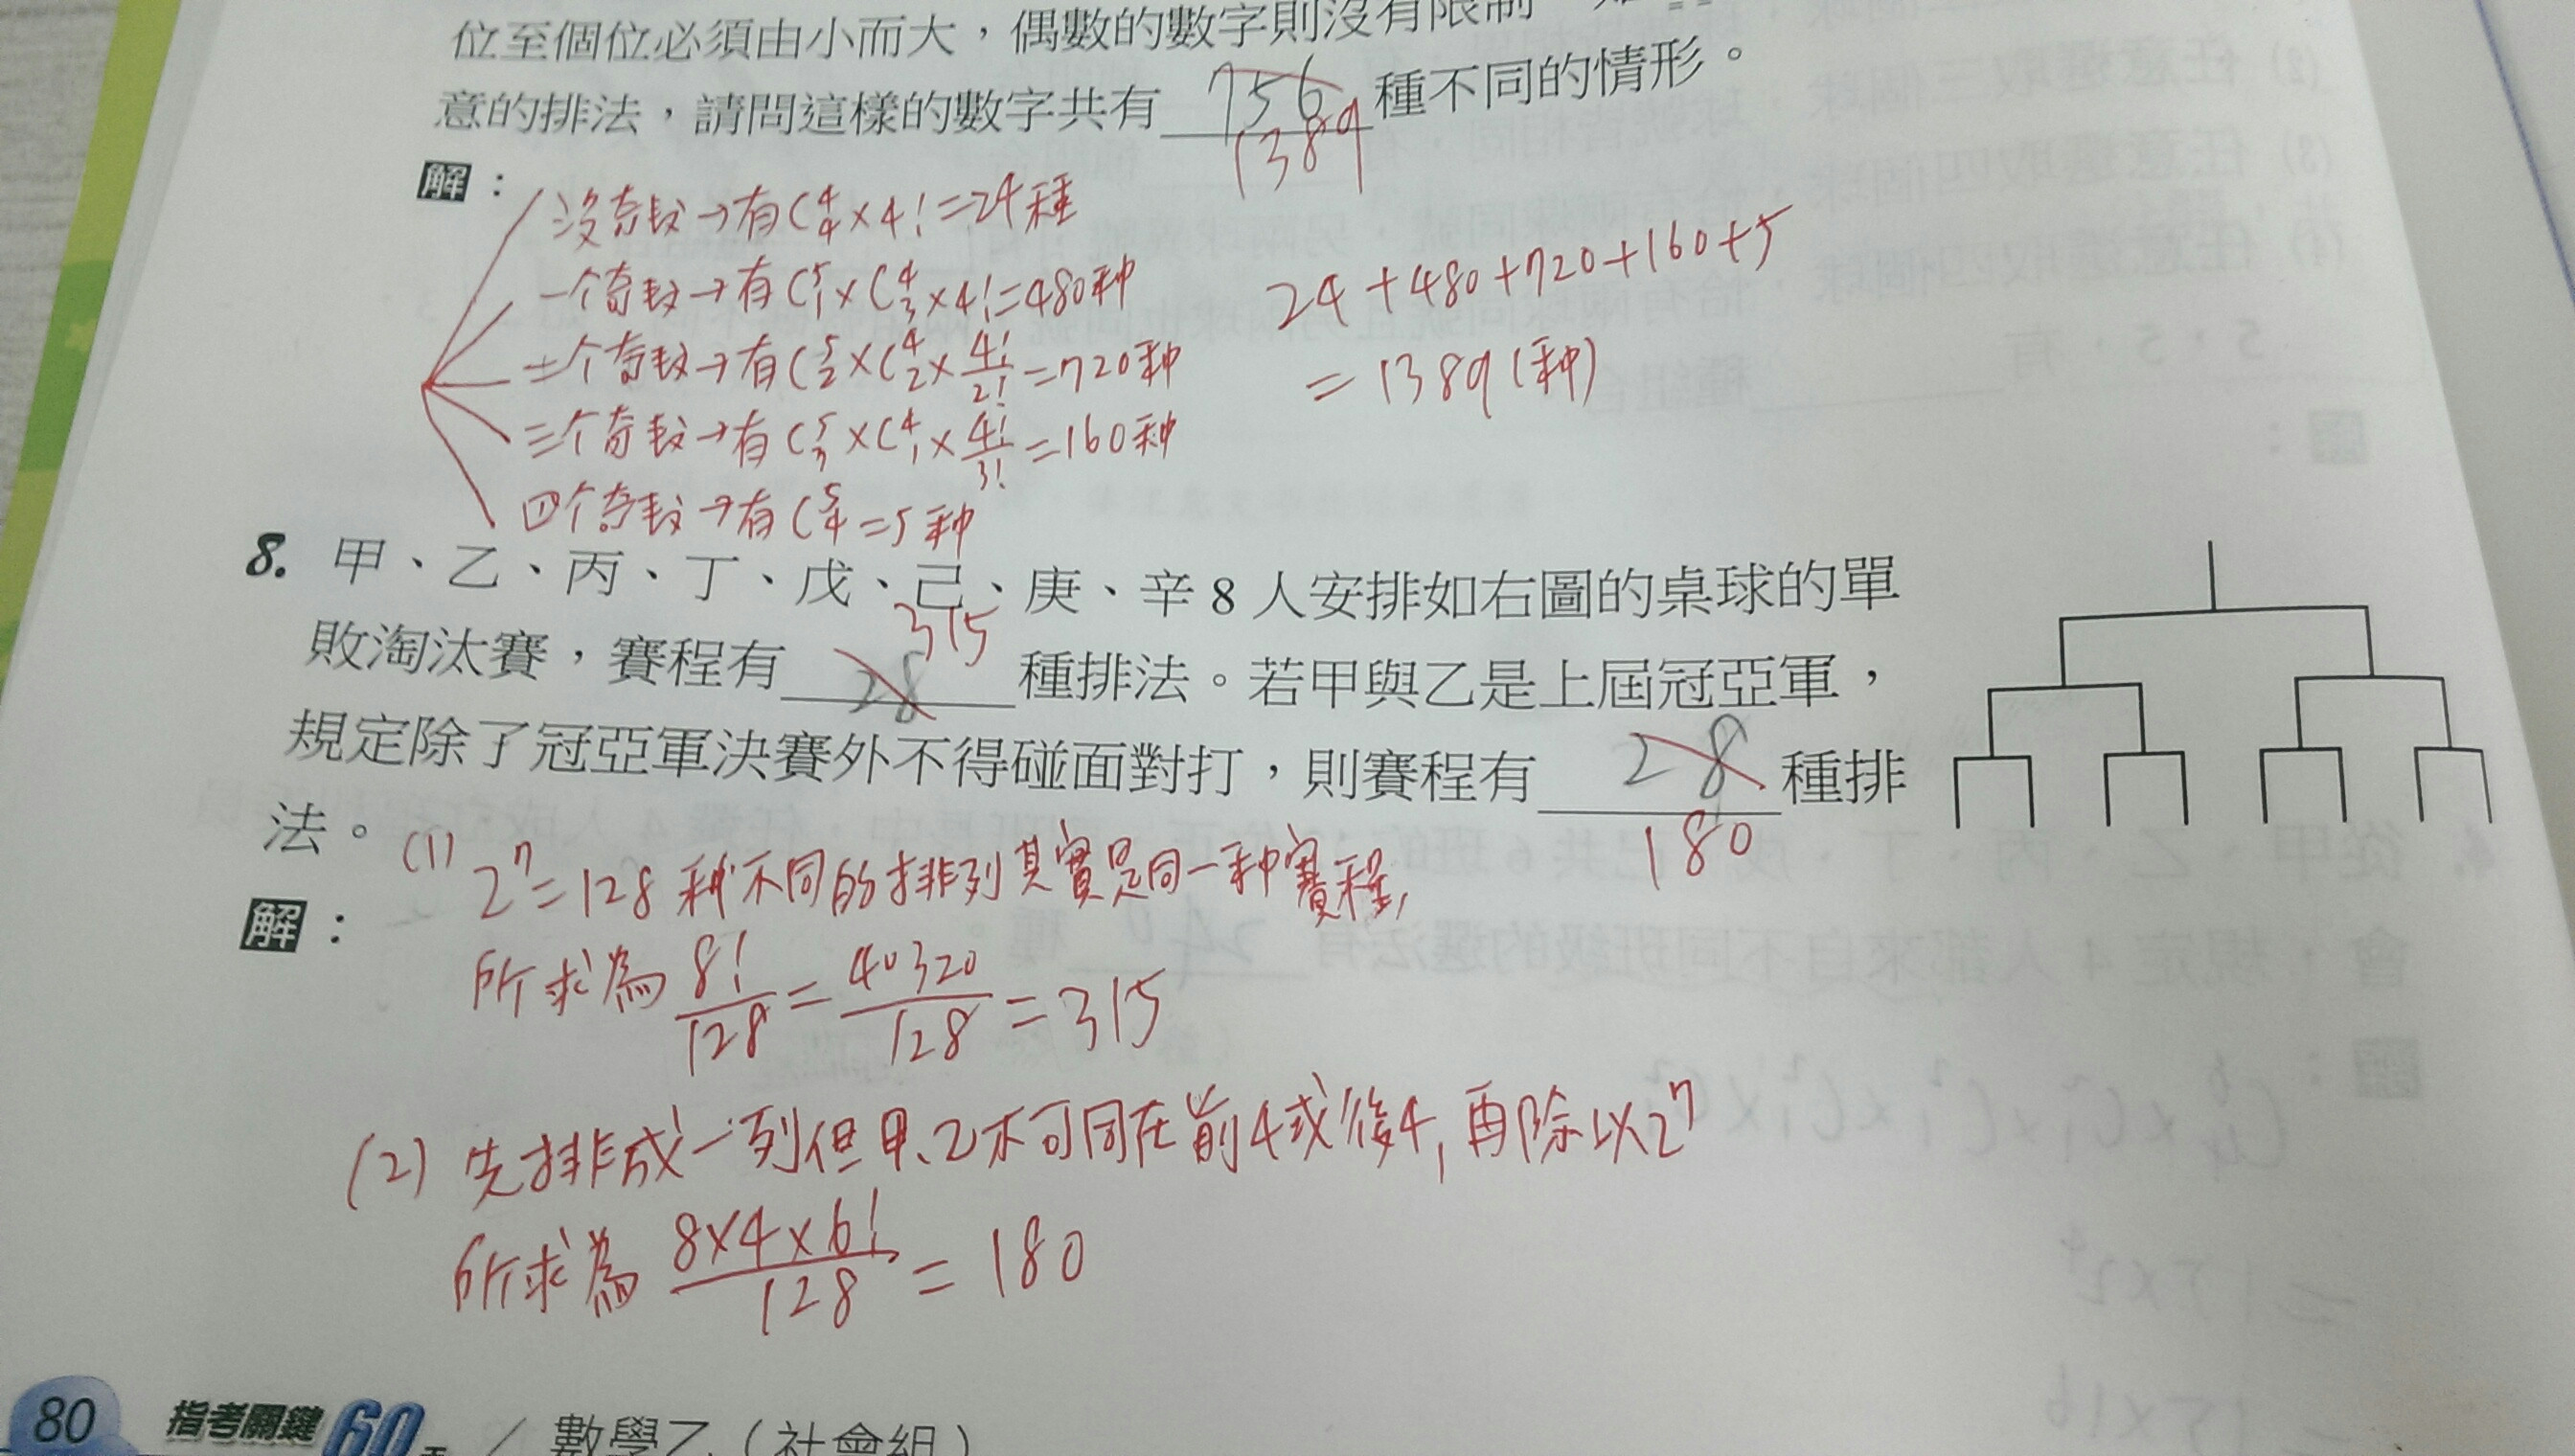 位至個位必須由小而大，偶數的數字則沒有限制
意的排法，請問這樣的數字共有 756 種不同的情形。
1389
解：
沒奇数→有C⁴₄×4!=24種
一个奇数→有C⁵₁×C⁴₃×4!=480种
二个奇数→有C⁵₂×C⁴₂×4!/2!=720种
三个奇数→有C⁵₃×C⁴₁×4!/3!=160种
四个奇数→有C⁵₄=5种
24+480+720+160+5
=1389(种)
8. 甲、乙、丙、丁、戊、己、庚、辛 8 人安排如右圖的桌球的單
315
敗淘汰賽，賽程有 28 種排法。若甲與乙是上屆冠亞軍，
規定除了冠亞軍決賽外不得碰面對打，則賽程有 28 種排
180
法。
解：
(1) 2⁷=128种不同的排列其實是同一种賽程,
所求為 8!/128=40320/128=315
(2) 先排成一列但甲、乙不可同在前4或後4, 再除以2⁷
所求為 8×4×6!/128=180
80 指考關鍵60天 / 數學乙（社會組）